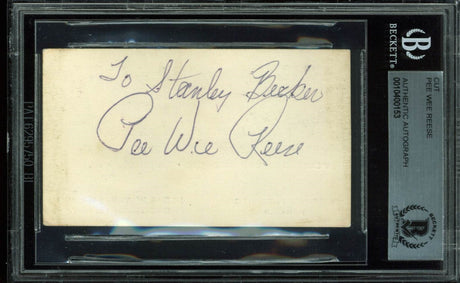 To Stanley Becker
Pee Wee Reese
BECKETT
CUT
PEE WEE REESE
AUTHENTIC AUTOGRAPH
0010400153
BECKETT